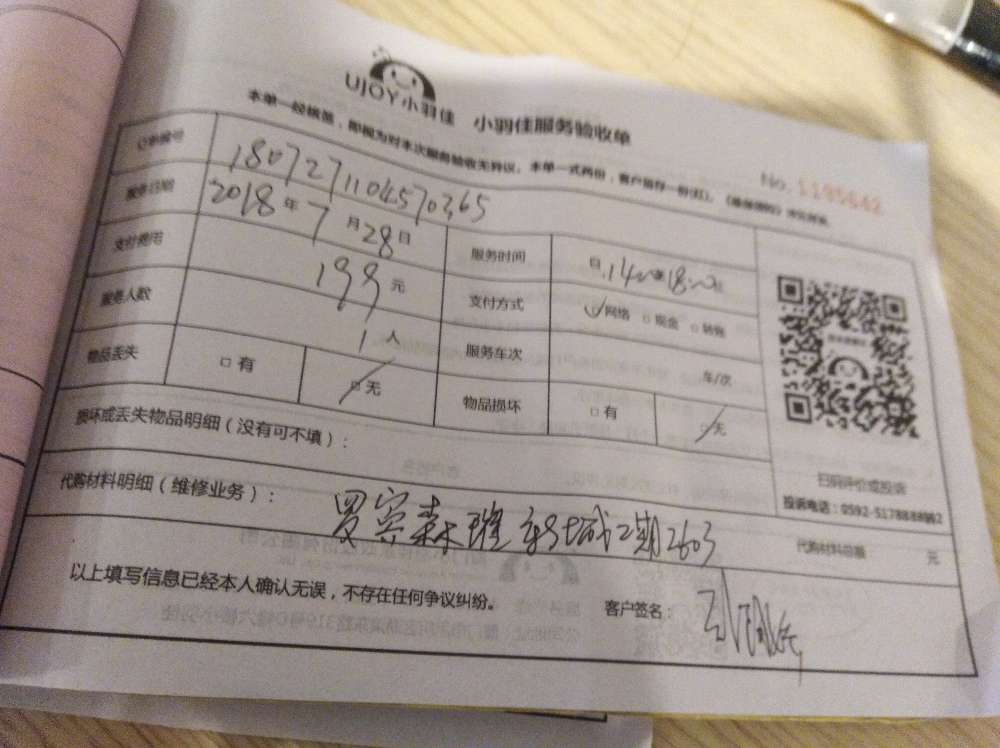 UJOY小羽佳 小羽佳服务验收单
No. 1195642
本单一经核签，即视为对本次服务验收无异议。本单一式两份，客户留存一份(红)。
订单编号 1807271104570365
服务日期 2018年7月28日 服务时间
支付费用 199元 支付方式 网络 □ 现金 □ 转账
服务人数 1人 服务车次 车/次
物品丢失 □ 有 □ 无 物品损坏 □ 有 □ 无
损坏或丢失物品明细（没有可不填）：
扫码评价或投诉
投诉电话：0592-5178888转2
代购材料明细（维修业务）：
代购材料总额 元
2期2603
以上填写信息已经本人确认无误，不存在任何争议纠纷。 客户签名：